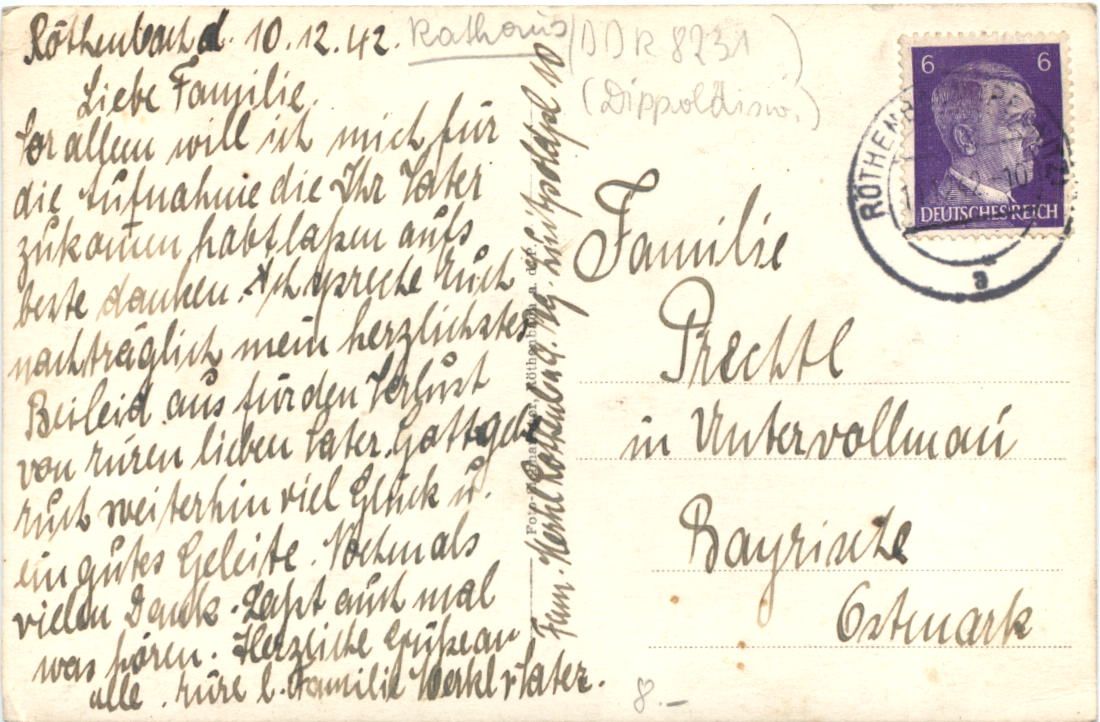 Röthenbach d. 10.12.42.
Liebe Familie.
Vor allem will ich mich für
die Aufnahme die Ihr Vater
zukommen habt laßen aufs
beste danken. Ich spreche Euch
nachträglich mein herzlichstes
Beileid aus für den Verlust
von Euren lieben Vater. Gott geb
Euch weiterhin viel Glück u.
ein gutes Geleite. Nochmals
vielen Dank. Laßt auch mal
was hören. Herzliche Grüße an
alle. Eure l. Familie Merkl u Vater.
Fam. Merkl Röthenbach a. Pg. Luitpoldpl 10
Röthenbach a. der
Rathaus
DDR 8231
(Dippoldisw.)
6 6
DEUTSCHES REICH
RÖTHENB
a
Familie
Prechtl
in Untervollmau
Bayrische
Ostmark
8.-